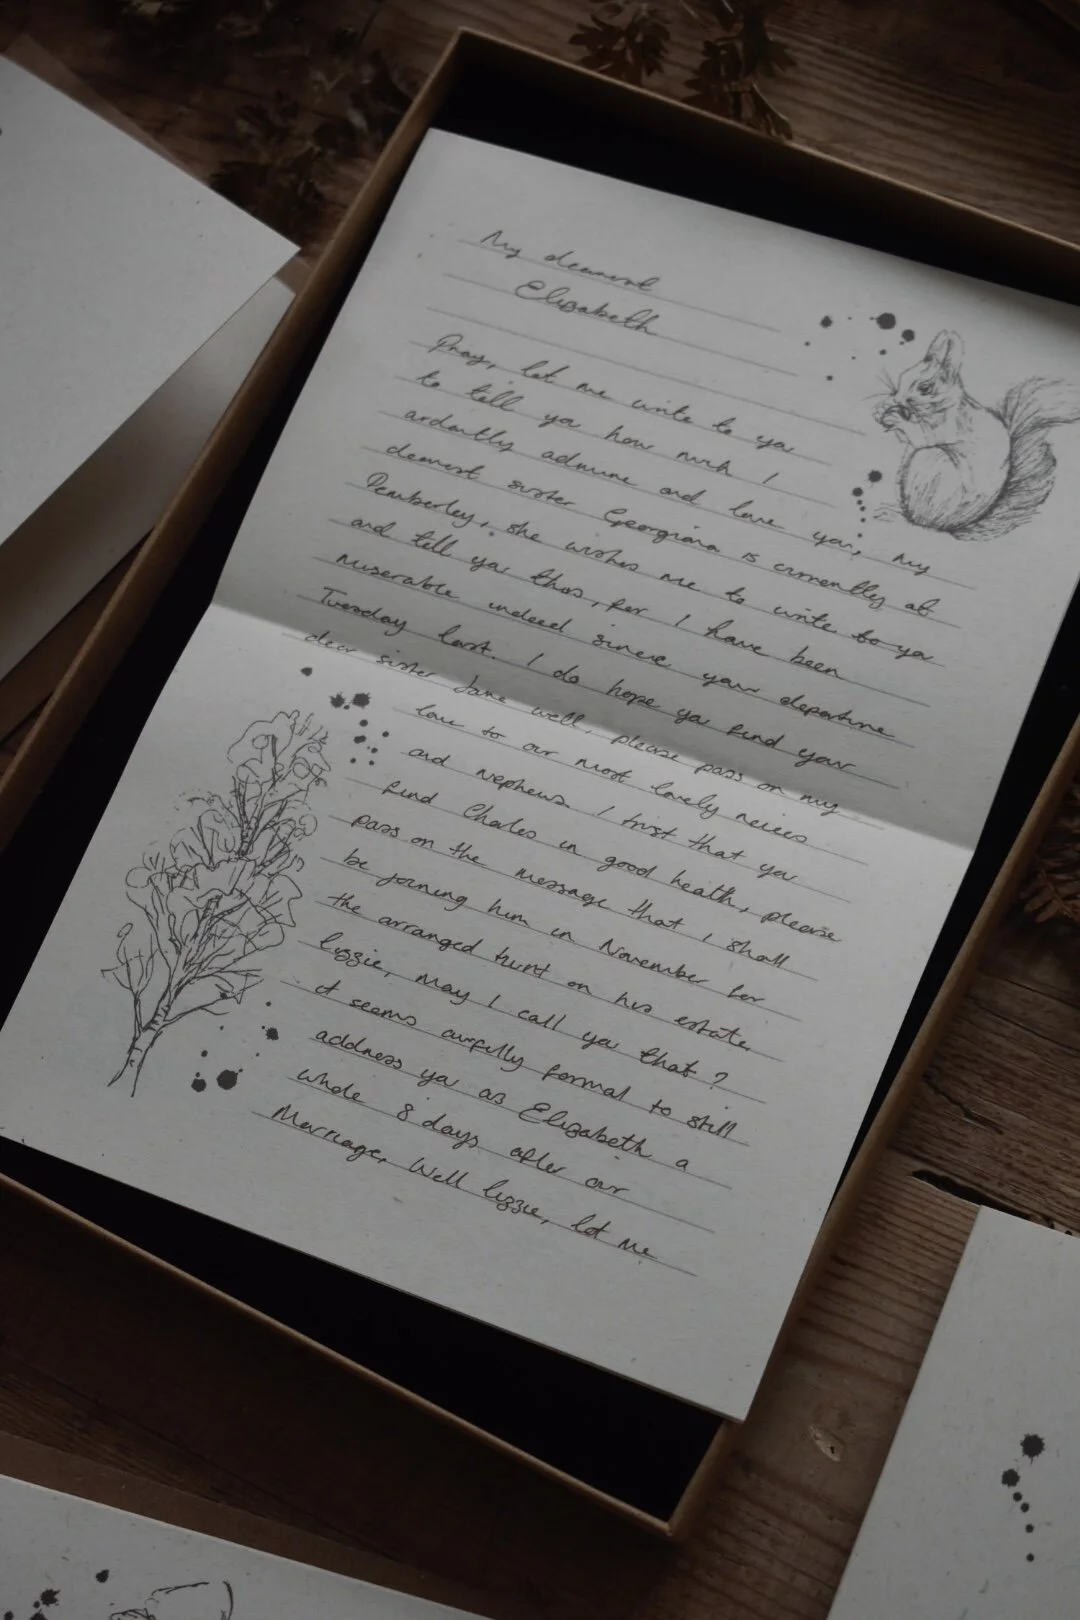 My dearest
Elizabeth
Pray, let me write to ya
to tell you how much I
ardently admire and love you, my
dearest sister Georgiana is currently at
Pemberley, she wishes me to write to ya
and tell ya thos, for I have been
miserable indeed since your departure
Tuesday last. I do hope ya find your
dear sister Jane well, please pass on my
love to our most lovely neices
and nephews. I trust that ya
find Charles in good heath, please
pass on the message that I shall
be joining him in November for
the arranged hunt on his estate.
lizzie, may I call ya that?
it seems awfully formal to still
address ya as Elizabeth a
whole 8 days after our
Marriage, Well lizzie, let me